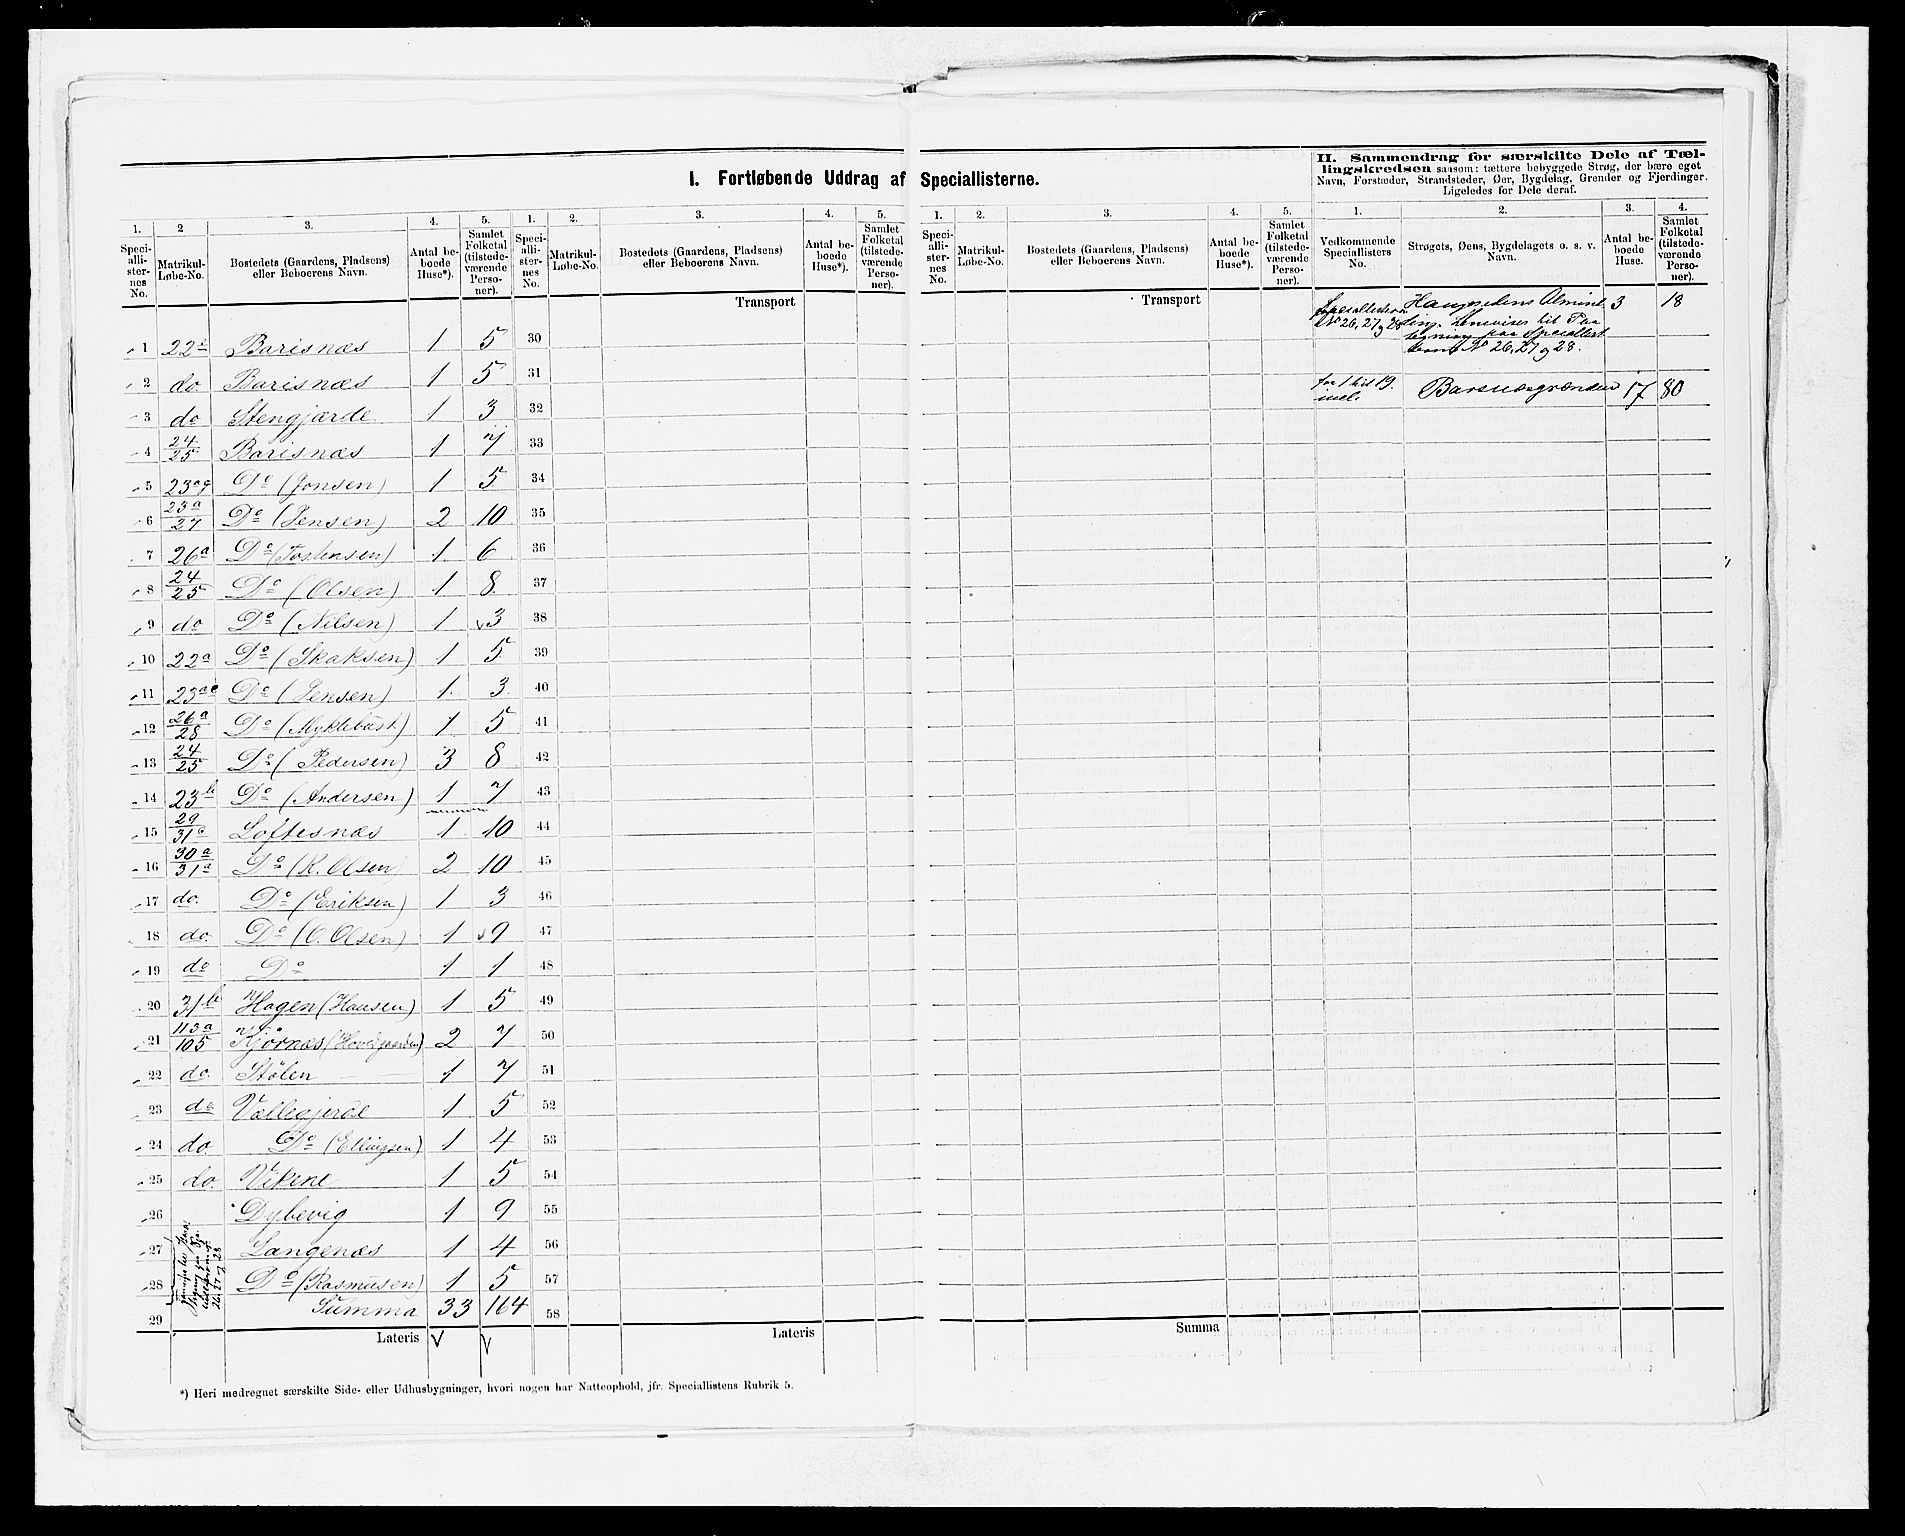 I. Fortløbende Uddrag af Speciallisterne.
II. Sammendrag for særskilte Dele af Tæl-
lingskredsen saasom: tættere bebyggede Strøg, der bære eget
Navn, Forstæder, Strandsteder, Øer, Bygdelag, Grender og Fjerdinger.
Ligeledes for Dele deraf.
1. 2 3. 4. 5. 1. 2. 3. 4. 5. 1. 2. 3. 4. 5. 1. 2. 3. 4.
Speci-alli-ster-nes No. Matrikul-Løbe-No. Bostedets (Gaardens, Pladsens) eller Beboerens Navn. Antal be-boede Huse*). Samlet Folketal (tilstede-værende Perso-ner).
Speci-alli-ster-nes No. Matrikul-Løbe-No. Bostedets (Gaardens, Pladsens) eller Beboerens Navn. Antal be-boede Huse*). Samlet Folketal (tilstede-værende Perso-ner).
Speci-alli-ster-nes No. Matrikul-Løbe-No. Bostedets (Gaardens, Pladsens) eller Beboerens Navn. Antal be-boede Huse*). Samlet Folketal (tilstede-værende Perso-ner).
Vedkommende Speciallisters No. Strøgets, Øens, Bygdelagets o. s. v. Navn. Antal be-boede Huse. Samlet Folketal (tilstede-værende Perso-ner).
Transport
Transport
1 22 Barisnæs 1 5 30
2 do. Barisnæs 1 5 31
3 do Stengjærde 1 3 32
4 24/25 Barisnæs 1 7 33
5 23 Do (Jonsen) 1 5 34
6 23a/27 Do (Jensen) 2 10 35
7 26a Do (Tostensen) 1 6 36
8 24/25 Do (Olsen) 1 8 37
9 do Do (Nilsen) 1 3 38
10 22a Do (Skaksen) 1 5 39
11 23 Do (Jensen) 1 3 40
12 26a/28 Do (Myklebust) 1 5 41
13 24/25 Do (Pedersen) 3 8 42
14 23b Do (Andersen) 1 7 43
15 29/31 Loftesnæs 1 10 44
16 30a/31a Do (R. Olsen) 2 10 45
17 do. Do (Eriksen) 1 3 46
18 do. Do (O. Olsen) 1 9 47
19 do Do 1 1 48
20 31b Hagen (Hansen) 1 5 49
21 113a/105 Kjørnæs (Hovedgaarden) 2 7 50
22 do. Stølen 1 7 51
23 do Vollegjerde 1 5 52
24 do. Do (Ellingsen) 1 4 53
25 do. Vikene 1 5 54
26 Dybevig 1 9 55
27 Langenæs 1 4 56
28 Do (Rasmusen) 1 5 57
29 Summa 33 164 58
26, 27 og 28
Lateris
Lateris
Summa
No 26, 27 og 28 3 18
henvises til Paa
tegning paa
No 26, 27 og 28.
fra 1 til 19. Barsnæsgrænden 17 80
incl.
*) Heri medregnet særskilte Side- eller Udhusbygninger, hvori nogen har Natteophold, jfr. Speciallistens Rubrik 5.